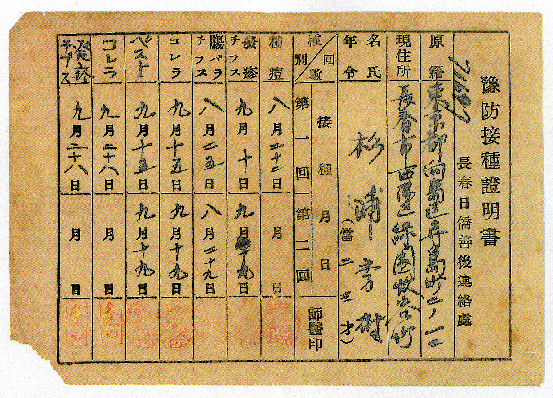 豫防接種證明書
長春日僑善後連絡處
原籍 東京都向島區寺島町二ノ一二
現住所 長春市
氏名 杉浦
年令 (當二三才)
種別 回數 接種月日 第一回 第二回 醫師印
種痘 八月二十二日 月 日
發疹チフス 九月十日 九月十九日
腸パラチフス 八月二五日 八月二十九日
コレラ 九月十五日 九月十九日
ペスト 九月十五日 九月十九日
コレラ 九月二十八日 月 日
チブス 九月二十八日 月 日